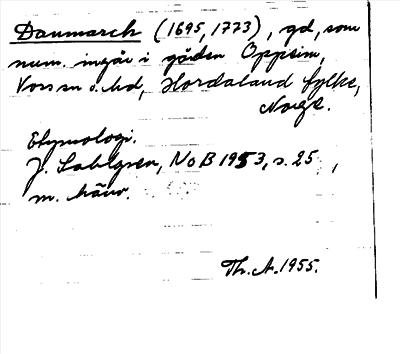 Danmarch (1695, 1773), gd, som
num. ingår i gården Oppeim,
Voss sn o. hd, Hordaland fylke,
Norge.
Etymologi.
J. Sahlgren, NoB 1953, s. 25,
m. hänv.
Th. A. 1955.